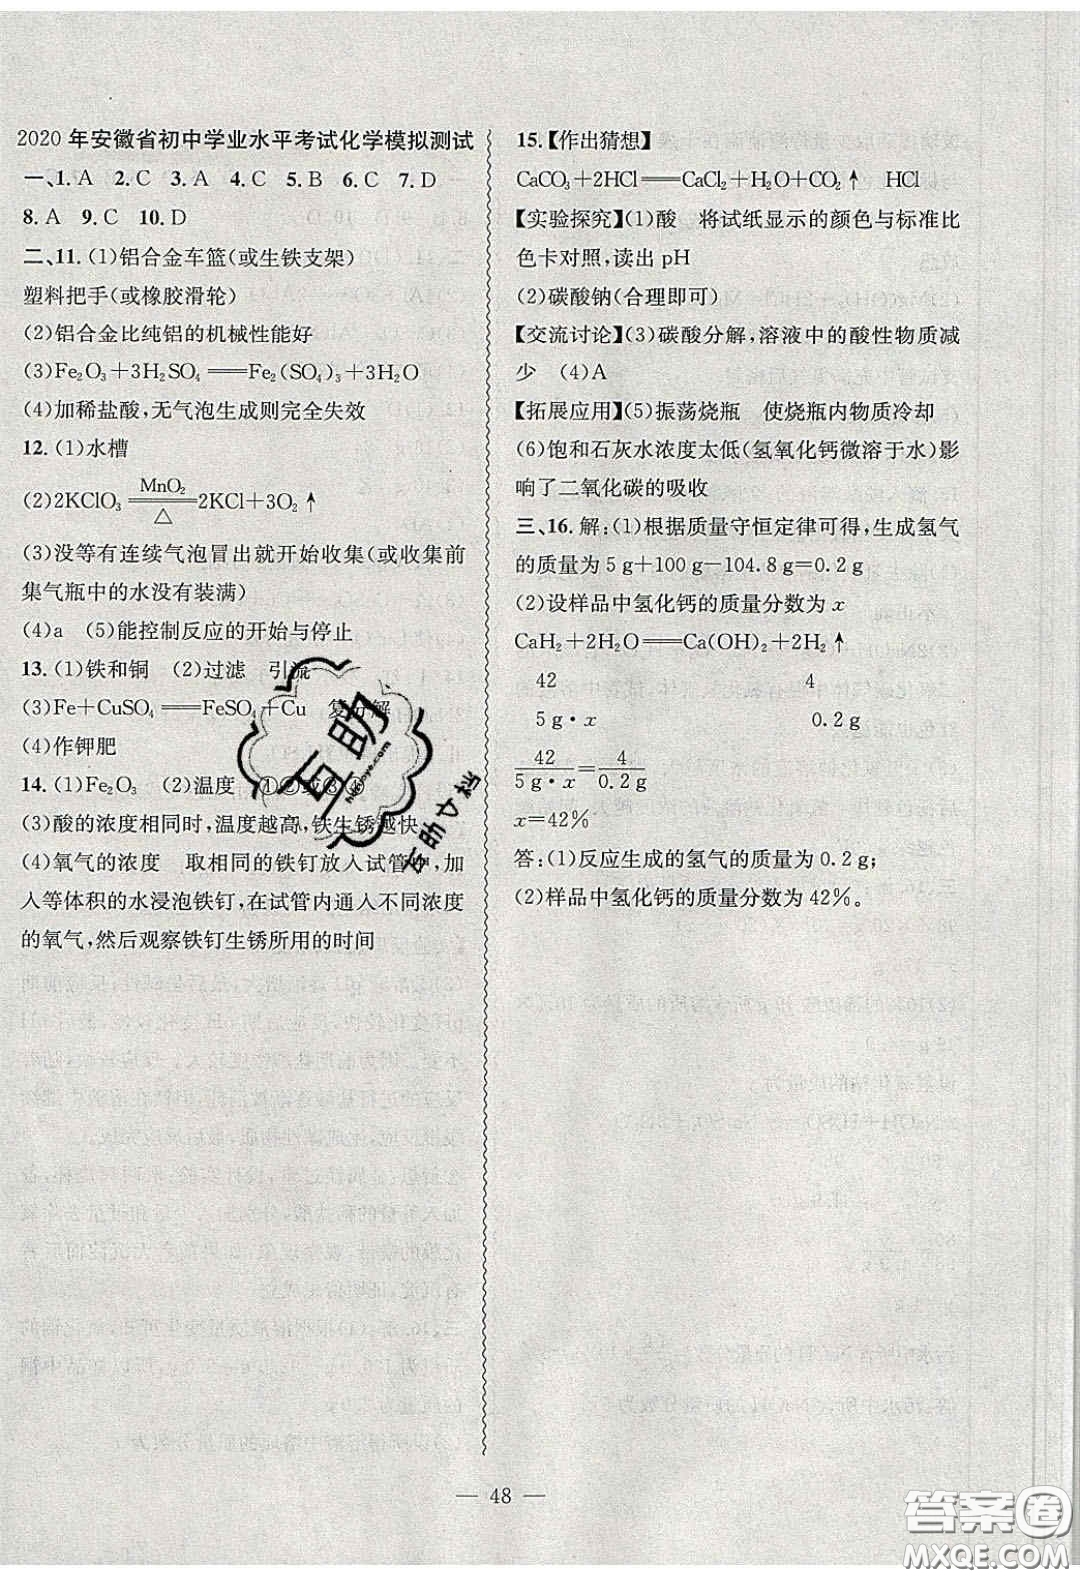 2020年安徽省初中学业水平考试化学模拟测试
一、1.A 2.C 3.A 4.C 5.B 6.C 7.D
8.A 9.C 10.D
二、11.(1)铝合金车篮(或生铁支架)
塑料把手(或橡胶滑轮)
(2)铝合金比纯铝的机械性能好
(3)Fe₂O₃+3H₂SO₄═══Fe₂(SO₄)₃+3H₂O
(4)加稀盐酸,无气泡生成则完全失效
12.(1)水槽
(2)2KClO₃ MnO₂ ═══ △ 2KCl+3O₂↑
(3)没等有连续气泡冒出就开始收集(或收集前
集气瓶中的水没有装满)
(4)a (5)能控制反应的开始与停止
13.(1)铁和铜 (2)过滤 引流
(3)Fe+CuSO₄═══FeSO₄+Cu 复分解
(4)作钾肥
14.(1)Fe₂O₃ (2)温度 ①②或③④
(3)酸的浓度相同时,温度越高,铁生锈越快
(4)氧气的浓度 取相同的铁钉放入试管中,加
入等体积的水浸泡铁钉,在试管内通入不同浓度
的氧气,然后观察铁钉生锈所用的时间
15.【作出猜想】
CaCO₃+2HCl═══CaCl₂+H₂O+CO₂↑ HCl
【实验探究】(1)酸 将试纸显示的颜色与标准比
色卡对照,读出 pH
(2)碳酸钠(合理即可)
【交流讨论】(3)碳酸分解,溶液中的酸性物质减
少 (4)A
【拓展应用】(5)振荡烧瓶 使烧瓶内物质冷却
(6)饱和石灰水浓度太低(氢氧化钙微溶于水)影
响了二氧化碳的吸收
三、16.解:(1)根据质量守恒定律可得,生成氢气
的质量为 5 g+100 g-104.8 g=0.2 g
(2)设样品中氢化钙的质量分数为 x
CaH₂+2H₂O═══Ca(OH)₂+2H₂↑
42 4
5 g·x 0.2 g
42/5 g·x=4/0.2 g
x=42%
答:(1)反应生成的氢气的质量为 0.2 g;
(2)样品中氢化钙的质量分数为 42%。
互助
互助
— 48 —
答案圈
MXQE.COM